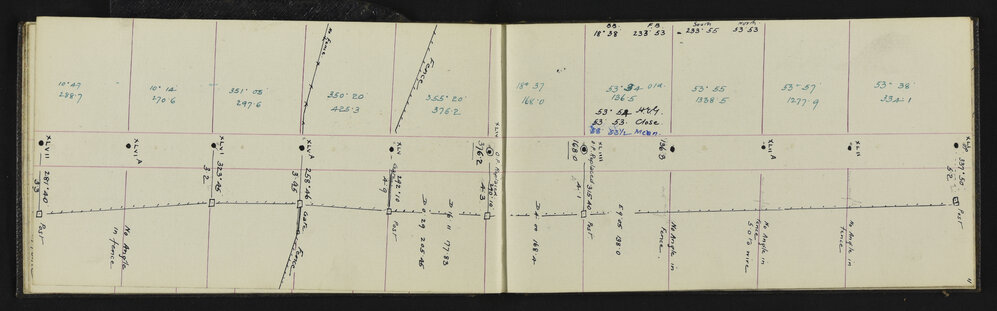 BB. F.B South North
18° 38 233° 53 - 233° 55 53° 53
Fence
Fence
10° 47
288.7
10° 14
270.6
351° 05'
297.6
350° 20'
425.3
355° 20'
376.2
18° 37
168.0
53° 54 old
136.5
53° 54 H.V.G.
53° 53 Close
53° 53½ Mean
53° 55
1338.5
53° 57'
1277.9
53° 38'
334.1
XLVII
XLVI A
XLVI
XLV A
XLV
XLIV
XLIII
XLII A
XLII
376.2
168.0
136.5
O.P. Replaced
281° 40
3.3
323° 45
3.2
258° 46
3.45
292° 10
4.9
4.3
4.1
315.40
337° 50
5.2
Post
No Angle
in fence
Gate
Fence
Post
D 0 29 205.45
D 16 11 177.83
D 4 00 168.4
Post
E 9 05 138.0
No Angle in
Fence.
No Angle in
fence
5.0 to wire
No Angle in
fence
Post
11